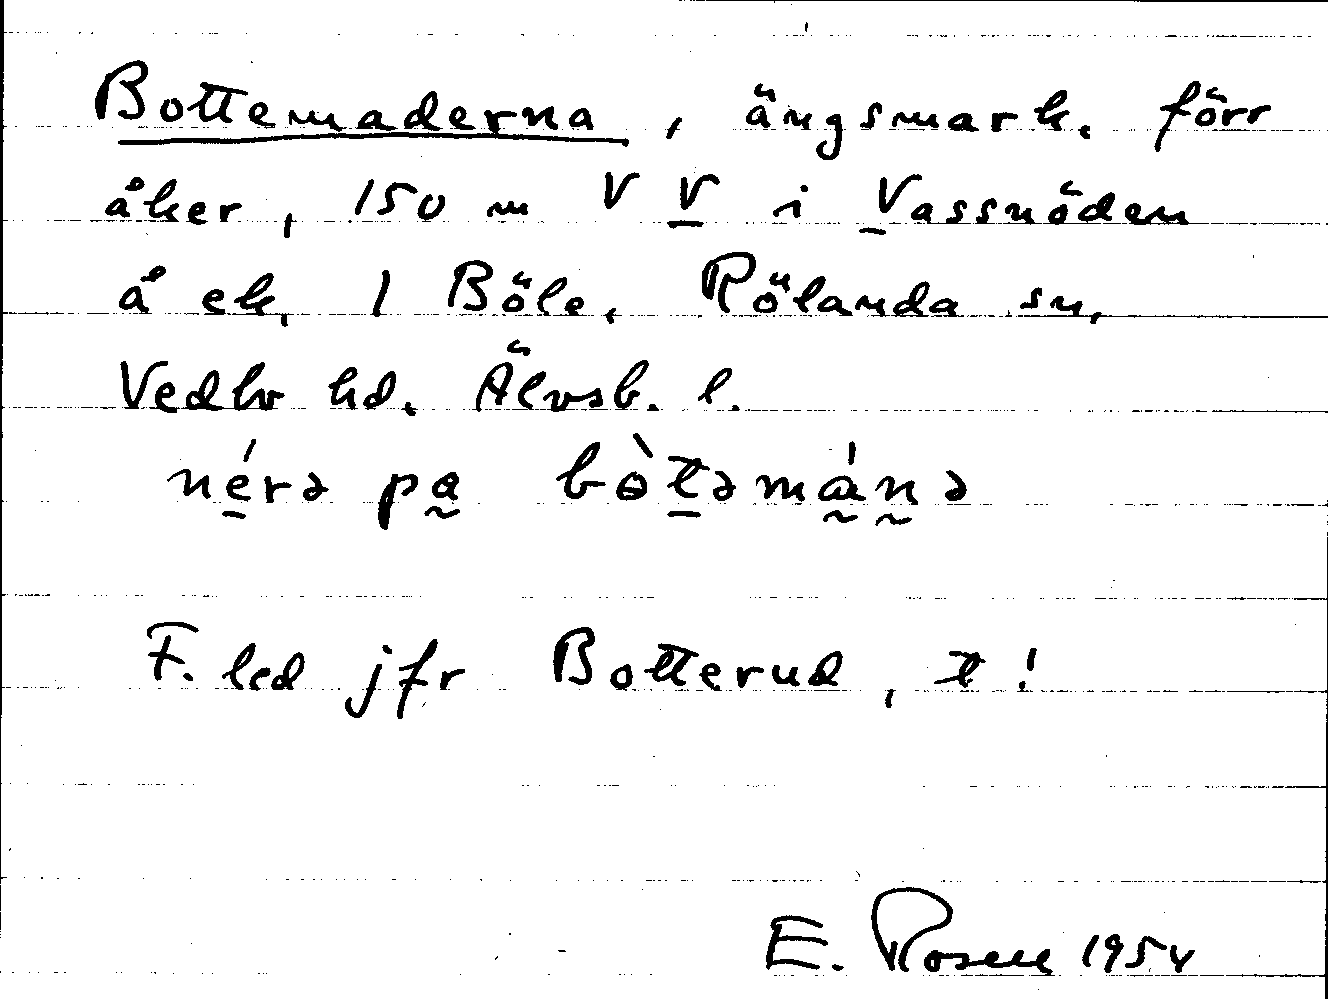 Bottemaderna, ängsmark, förr
åker, 150 m V V i Vassnöden
å ek. 1 Böle, Rölanda sn,
Vedbo hd. Älvsb. l.
nérə pa bòtəmánə
F. led jfr Botterud, t!
E. Rosell 1954